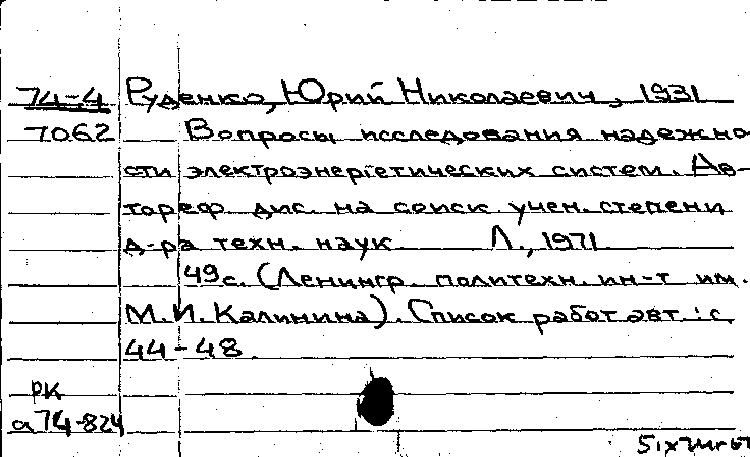 74-4 Руденко, Юрий Николаевич, 1931
7062 Вопросы исследования надежно
сти электроэнергетических систем. Ав-
тореф. дис. на соиск. учен. степени
д-ра техн. наук Л., 1971
49 с. (Ленингр. политехн. ин-т им.
М. И. Калинина). Список работ авт.: с.
44-48.
РК
а 74-824